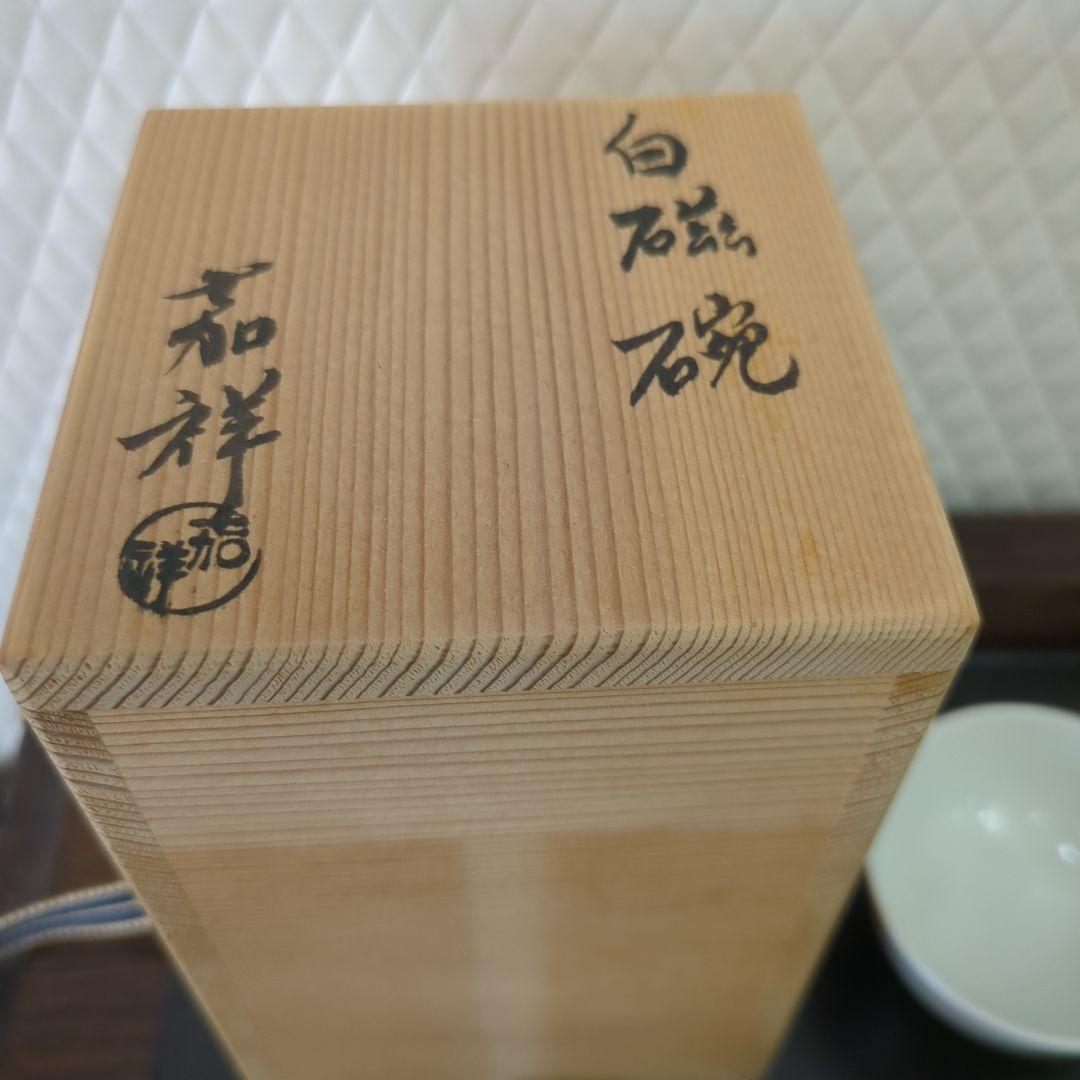 白磁碗
嘉祥
嘉祥